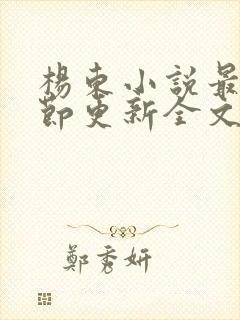 楊東小說最
節更新全文
鄭秀妍